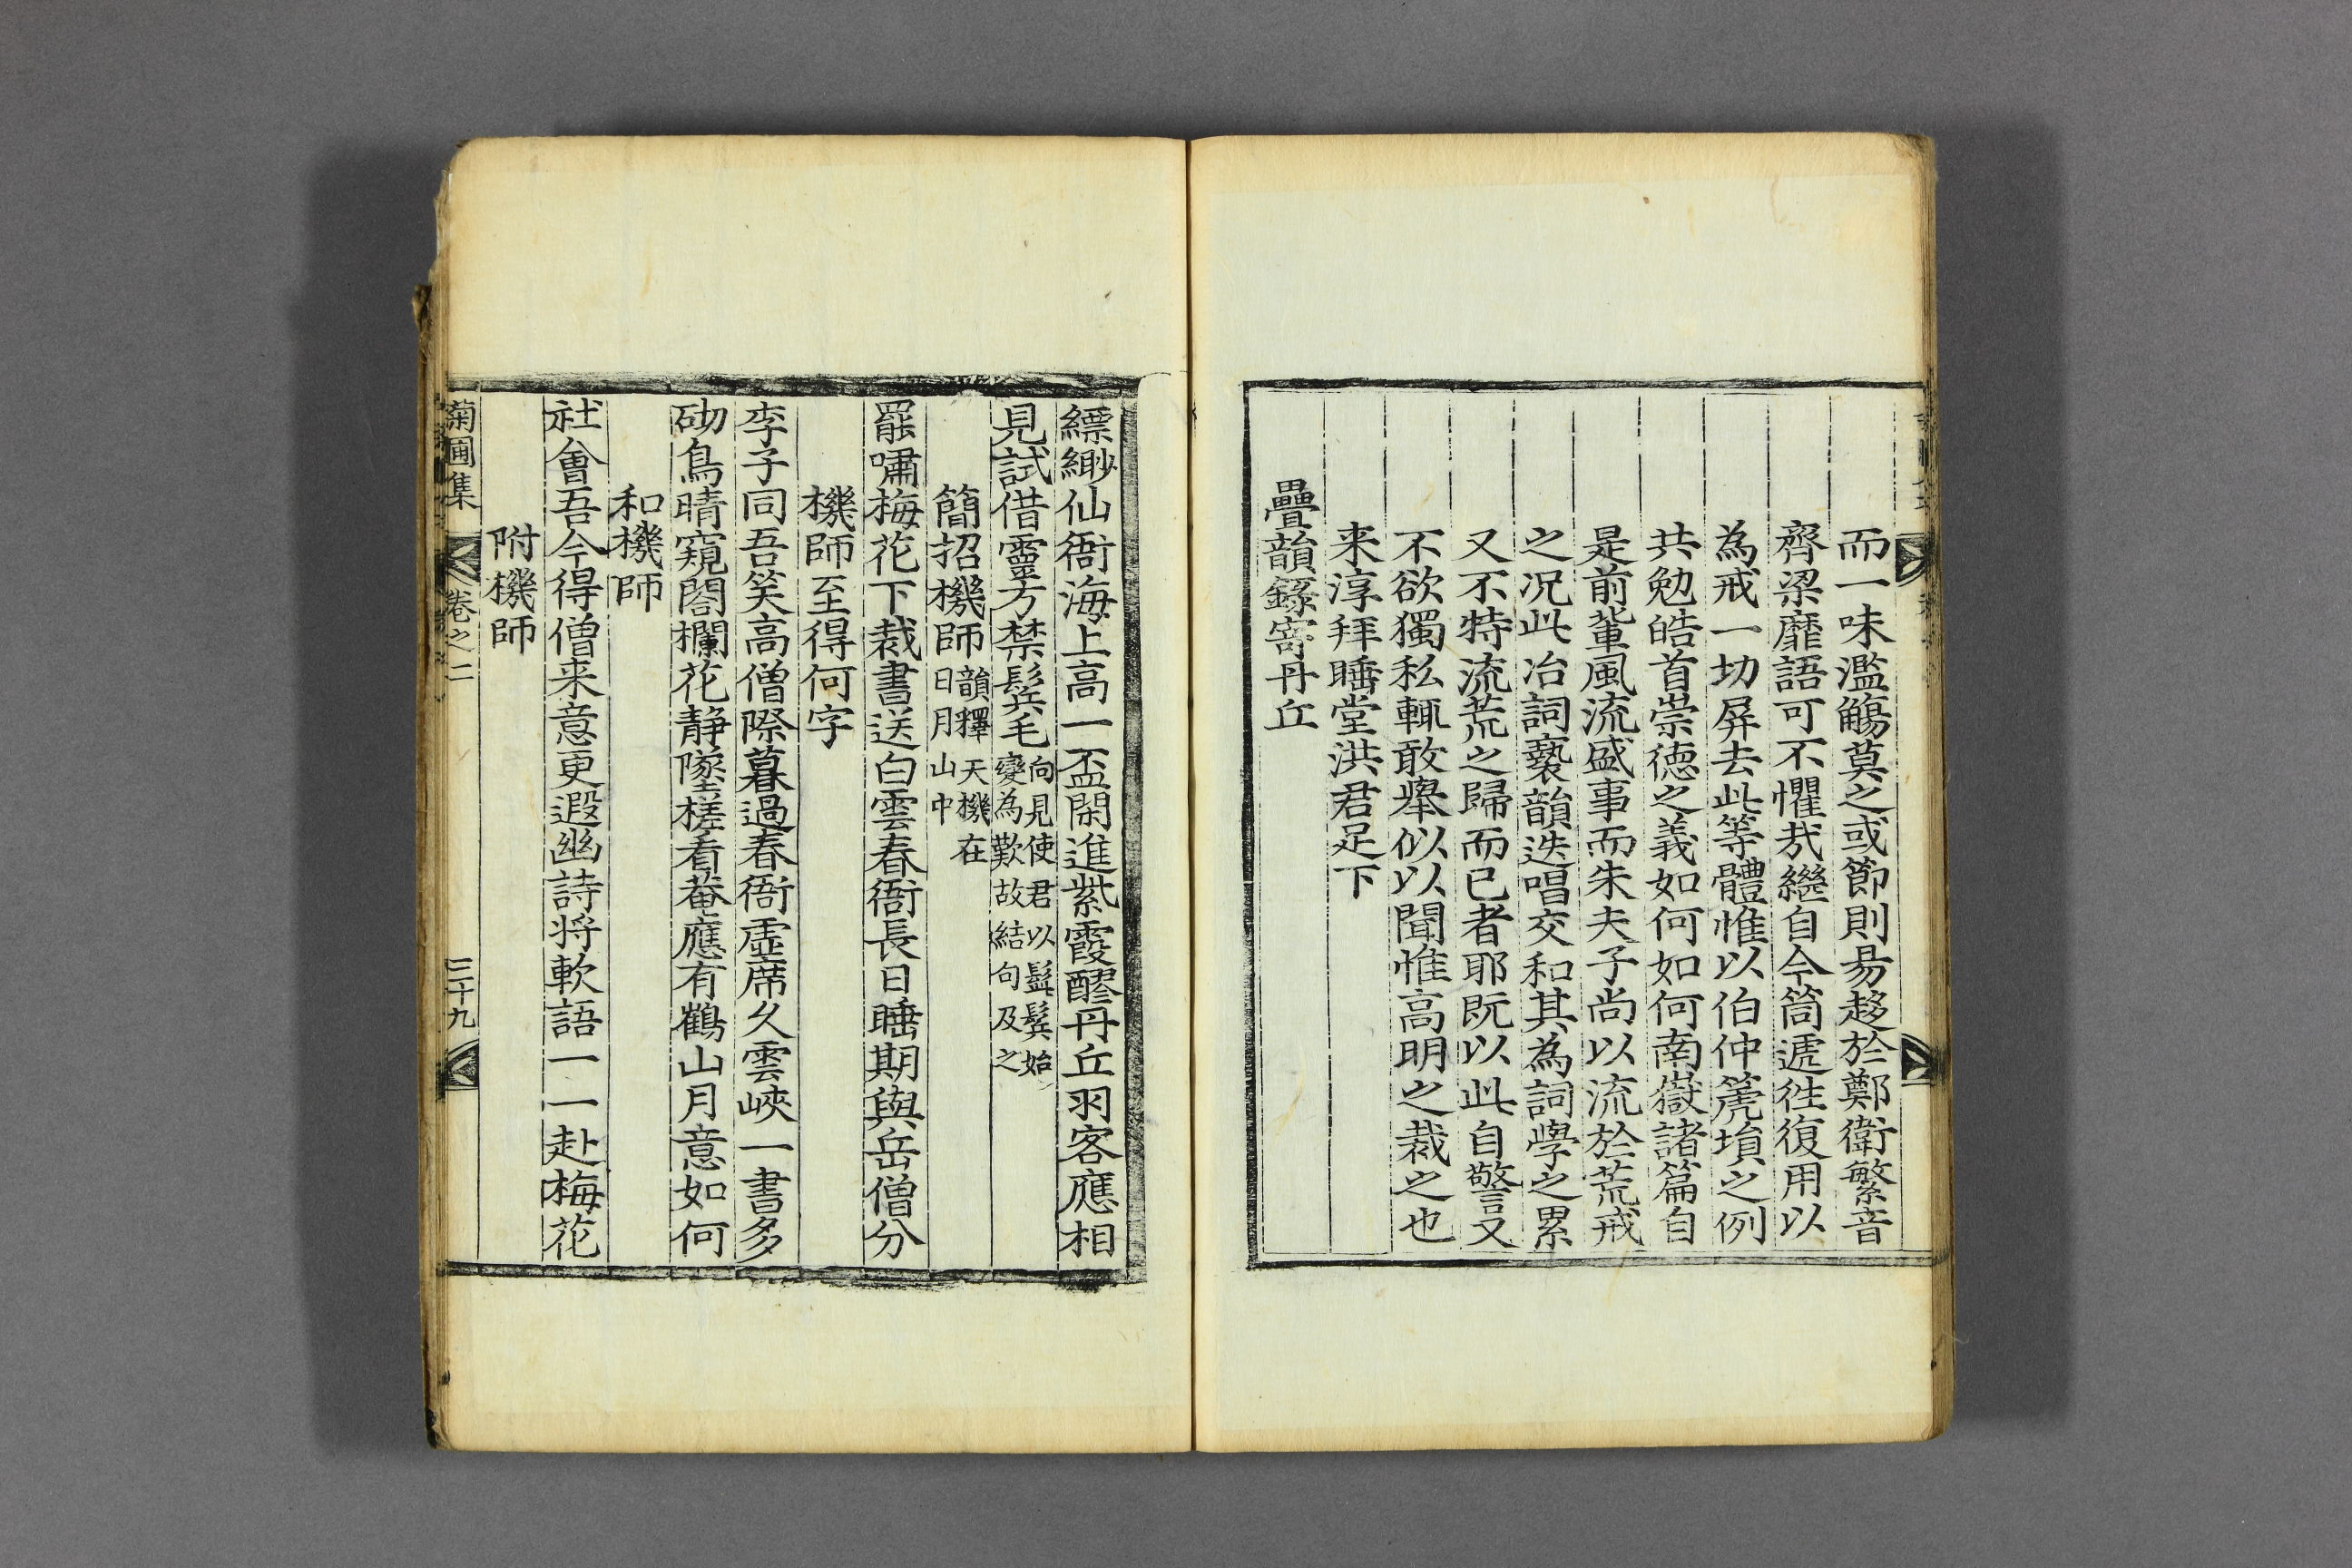 而一味濫觴莫之或節則易趍於鄭衛繁音
齊梁靡語可不懼㢤繼自今筒遞徃復用以
為戒一切屏去此等體惟以伯仲篪塤之例
共勉皓首崇德之義如何如何南嶽諸篇自
是前軰風流盛事而朱夫子尚以流於荒戒
之况此冶詞䙝韻迭唱交和其為詞學之累
又不特流荒之歸而已者耶既以此自警又
不欲獨私輒敢擧似以聞惟高明之裁之也
来淳拜睡堂洪君足下
疊韻錄寄丹丘
縹緲仙衙海上高一盃閑進紫霞醪丹丘羽客應相
見試借靈方禁鬂毛向見使君以鬍鬂始變為歎故結句及之
簡招機師韻釋天機在日月山中
罷嘯梅花下裁書送白雲春衙長日睡期與岳僧分
機師至得何字
李子同吾笑高僧際暮過春衙虛席久雲峽一書多
砌鳥晴窺閤欄花静墜槎看菴應有鶴山月意如何
和機師
社會吾今得僧来意更遐幽詩将軟語一一赴梅花
附機師
菊圃集 卷之二 三十九